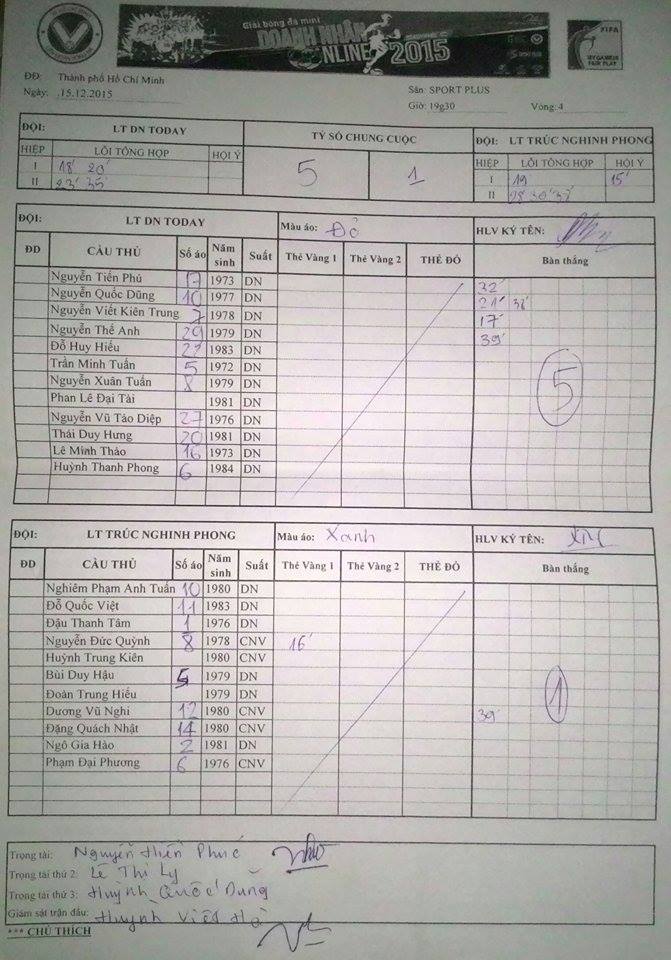 Giải bóng đá mini
DOANH NHÂN
ONLINE 2015
FIFA
MY GAME IS
FAIR PLAY
ĐĐ: Thành phố Hồ Chí Minh
Ngày: 15.12.2015
Sân: SPORT PLUS
Giờ: 19g30 Vòng: 4
ĐỘI: LT DN TODAY TỶ SỐ CHUNG CUỘC ĐỘI: LT TRÚC NGHINH PHONG
HIỆP LỖI TỔNG HỢP HỘI Ý 5 1 HIỆP LỖI TỔNG HỢP HỘI Ý
I 18' 20' I 19 15'
II 23' 35' II 28' 30'
ĐỘI: LT DN TODAY Màu áo: Đỏ HLV KÝ TÊN:
ĐD CẦU THỦ Số áo Năm sinh Suất Thẻ Vàng 1 Thẻ Vàng 2 THẺ ĐỎ Bàn thắng
Nguyễn Tiến Phú 17 1973 DN 32'
Nguyễn Quốc Dũng 10 1977 DN 21' 38'
Nguyễn Viết Kiên Trung 7 1978 DN 17'
Nguyễn Thế Anh 29 1979 DN 39'
Đỗ Huy Hiếu 22 1983 DN
Trần Minh Tuấn 5 1972 DN
Nguyễn Xuân Tuấn 8 1979 DN 5
Phan Lê Đại Tài 1981 DN
Nguyễn Vũ Tảo Diệp 27 1976 DN
Thái Duy Hưng 20 1981 DN
Lê Minh Thảo 16 1973 DN
Huỳnh Thanh Phong 6 1984 DN
ĐỘI: LT TRÚC NGHINH PHONG Màu áo: Xanh HLV KÝ TÊN:
ĐD CẦU THỦ Số áo Năm sinh Suất Thẻ Vàng 1 Thẻ Vàng 2 THẺ ĐỎ Bàn thắng
Nghiêm Phạm Anh Tuấn 10 1980 DN
Đỗ Quốc Việt 11 1983 DN
Đậu Thanh Tâm 1 1976 DN
Nguyễn Đức Quỳnh 8 1978 CNV 16'
Huỳnh Trung Kiên 1980 CNV
Bùi Duy Hậu 5 1979 DN
Đoàn Trung Hiếu 1979 DN 1
Dương Vũ Nghi 12 1980 CNV 39'
Đặng Quách Nhật 14 1980 CNV
Ngô Gia Hào 2 1981 DN
Phạm Đại Phương 6 1976 CNV
Trọng tài: Nguyễn Hiền Phúc
Trọng tài thứ 2: Lê Thị Ly
Trọng tài thứ 3: Huỳnh Quốc Dũng
Giám sát trận đấu: Huỳnh Việt Hà
*** CHÚ THÍCH